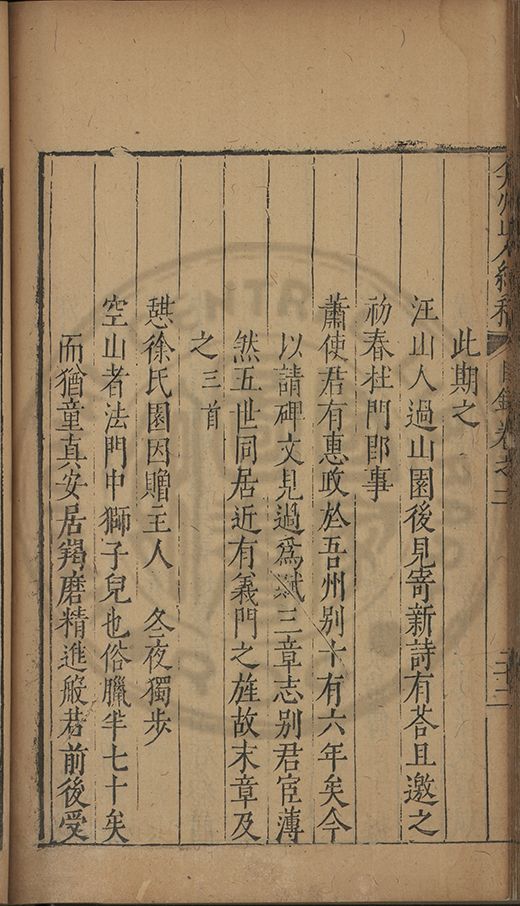 弇州山人續稿 目錄卷之二 二十二
此期之
汪山人過山園後見寄新詩有荅且邀之
初春杜門即事
蕭使君有惠政於吾州别十有六年矣今
以請碑文見過爲賦三章志别君宦薄
然五世同居近有義門之旌故末章及
之三首
憇徐氏園因贈主人　冬夜獨步
空山者法門中獅子兒也俗臘半七十矣
而猶童真安居羯磨精進般若前後受